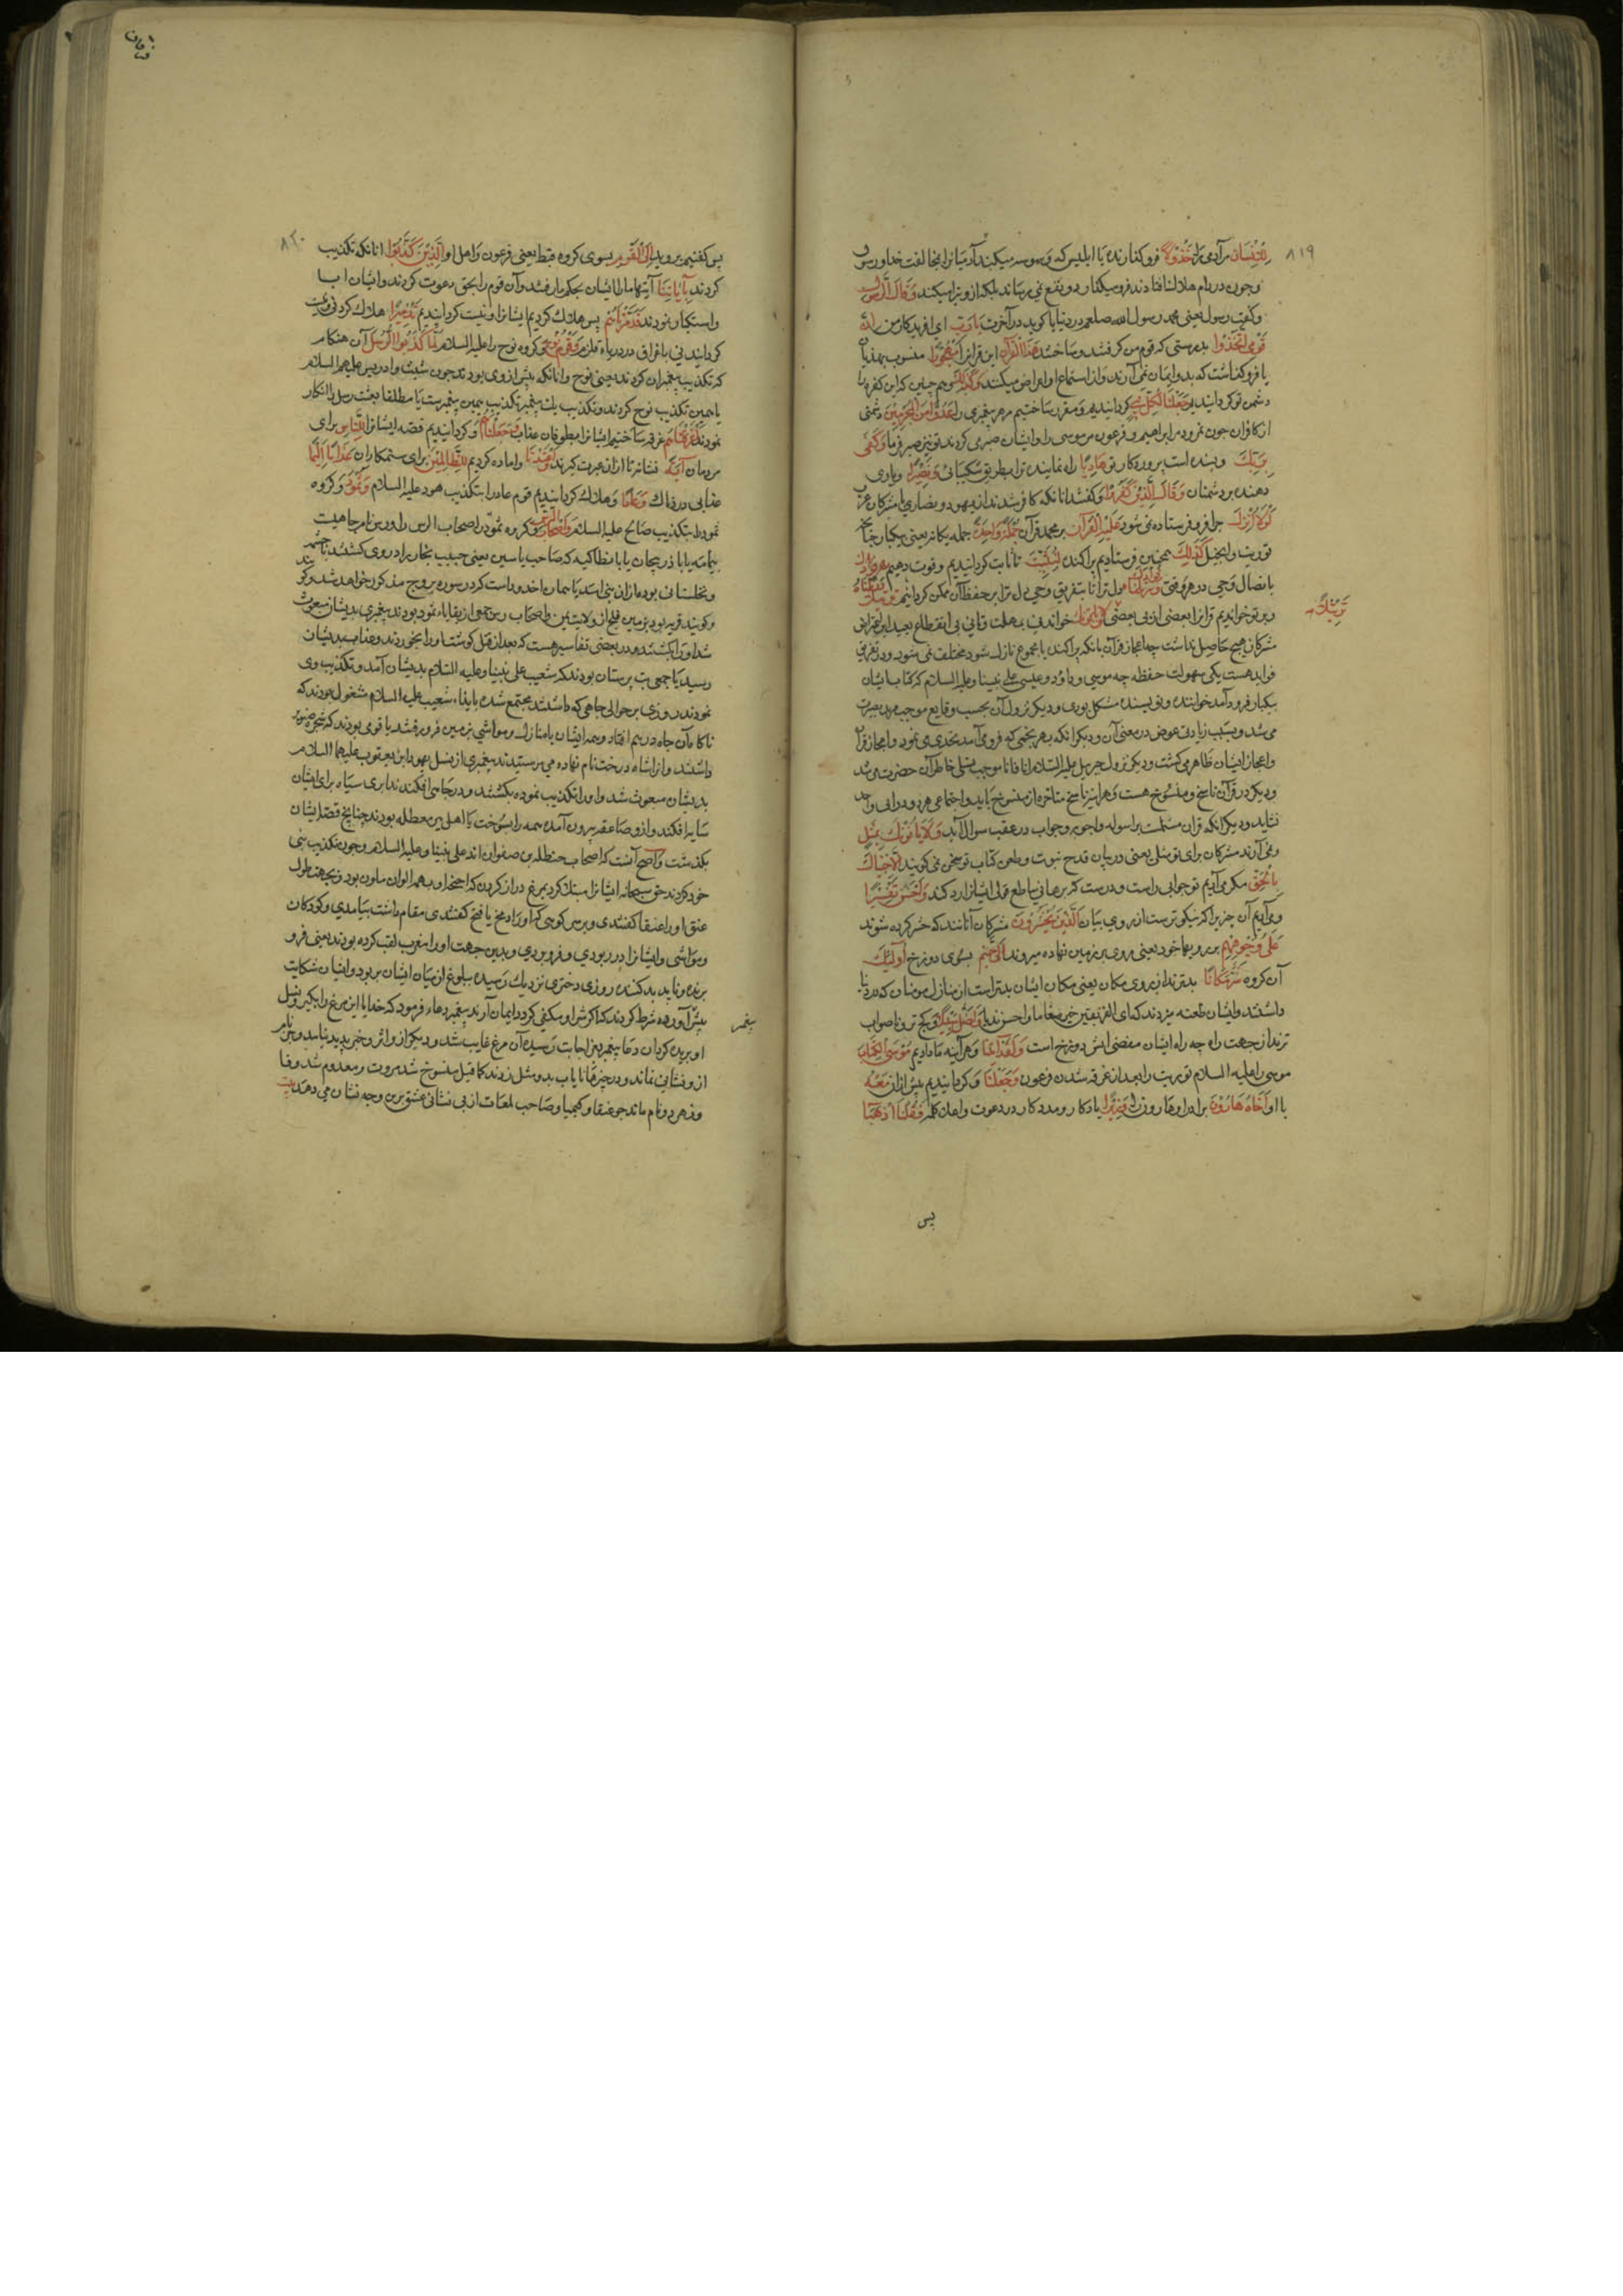 ٨١٩
لِلْاِنْسَانِ مر آدمی را خَذُولًا فرو کذارنده یا ابلیس که وسوسه میکند آدمیانرا بمخالفت خدا و رسول
و چون در دام هلاکت افتادند فرو میکذارد و نفع نمی رساند بلکه ازو تبرا میکند وَقَالَ الرَّسُولُ
و کفت رسول یعنی محمد رسول الله صلعم در دنیا یا کوید در آخرت یَا رَبِّ ای افریدکار من اِنَّ
قَوْمِی اتَّخَذُوا بدرستی که قوم من کرفتند و ساختند هٰذَا الْقُرْآنَ این قرانرا مَهْجُورًا منسوب بهذیان
یا فرو کذاشت که بدو ایمان نمی آرند و از استماع او اعراض میکنند وَکَذٰلِکَ و همچنین که این کفره را
دشمن تو کردانیدیم جَعَلْنَا لِکُلِّ نَبِیٍّ کردانیدیم و مقرر ساختیم مر هر پیغمبری را عَدُوًّا مِنَ الْمُجْرِمِینَ دشمنی
از کافران چون نمرود مر ابراهیم و فرعون مر موسی را و ایشان صبر می کردند تو نیز صبر فرما وَکَفٰی
بِرَبِّکَ و بسنده است پروردکار تو هَادِیًا راه نماینده ترا بطریق شکیبائی وَنَصِیرًا و یاری
دهنده بر دشمنان وَقَالَ الَّذِینَ کَفَرُوا و کفتند انانکه کافر شدند از یهود و نصاری یا مشرکان عرب
لَوْلَا نُزِّلَ چرا فرو فرستاده نمی شود عَلَیْهِ الْقُرْآنُ بر محمد قرآن جُمْلَةً وَاحِدَةً جمله یکانه یعنی بیکبار چنانچه
توریت و انجیل کَذٰلِکَ همچنین فرستادیم پراکنده لِنُثَبِّتَ تا ثابت کردانیدیم و قوت دهیم بِهِ فُؤَادَکَ
باتصال وحی در هر وقتی دل ترا تا بتفریق وحی دل ترا بر حفظ آن ممکن کردانیم وَرَتَّلْنَاهُ
تَرْتِیلًا
و بر تو خواندیم قرانرا بعضی از پی بعضی خواندنی بمهلت و تانی بی انقطاع بعید این اعتراض
مشرکان هیچ حاصل نداشت چه اعجاز قرآن بانکه پراکنده یا مجموع نازل شود مختلف نمی شود و در تفریق
فواید هست یکی سهولت حفظ چه موسی و داود و عیسی علی نبینا و علیه السلام که کتاب ایشان
بیکبار فرود آمد خواننده و نویسنده مشکل بودی و دیکر نزول آن بحسب وقایع موجب مزید بصیرت
می شد و بسبب زیادتی غوض در معنی آن و دیکر انکه بهر نجمی که فرو می آمد تحدی می نمود و اعجاز قرآن
و اعجاز ایشان ظاهر می کشت و دیکر نزول جبریل علیه السلام انا فانا موجب تسلی خاطر آن حضرت می شد
و دیکر در قرآن ناسخ و منسوخ هست و هر اینه ناسخ متاخر از منسوخ باید و اجتماع هر دو در آنی واحد
نشاید و دیکر انکه قران مشتملست بر اسوله و اجوبه و جواب در عقب سوال آید وَلَا یَاْتُونَکَ بِمَثَلٍ
و نمی آرند مشرکان برای تو مثلی یعنی در بیان قدح نبوت و طعن کتاب تو سخن نمی کویند اِلَّا جِئْنَاکَ
بِالْحَقِّ مکر می آدیم تو جوابی راست و درست که ببرهانی ساطع قول ایشانرا رد کند وَاَحْسَنَ تَفْسِیرًا
و می آدیم آن چیزیرا که نیکوترست از روی بیان اَلَّذِینَ یُحْشَرُونَ مشرکان آنانند که حشر کرده شوند
عَلٰی وُجُوهِهِمْ بر رویهاء خود یعنی روی بر زمین نهاده میروند اِلٰی جَهَنَّمَ بسوی دوزخ اُولٰئِکَ
آن کروه شَرٌّ مَکَانًا بدترند از روی مکان یعنی مکان ایشان بدتر است از منازل مومنان که در دنیا
داشتند و ایشان طعنه میزدند که ای الفریقین خیر مقاما و احسن ندیا وَاَضَلُّ سَبِیلًا و کج ترو ناصواب
ترند از جهت راه چه راه ایشان مفضی اتش دوزخ است وَلَقَدْ اٰتَیْنَا و هر آینه ما دادیم مُوسَی الْکِتَابَ
موسی را علیه السلام توریت را بعد از غرقه شدن فرعون وَجَعَلْنَا و کردانیدیم پیش از ان مَعَهُ
با او اَخَاهُ هَارُونَ برادر او هارون را وَزِیرًا یادکار و مددکار در دعوت و اعلان کلمه فَقُلْنَا اذْهَبَا
پس
فرقان
٨٢٠
پس کفتیم بروید اِلَی الْقَوْمِ بسوی کروه قبط یعنی فرعون و اهل او الَّذِینَ کَذَّبُوا انانکه تکذیب
کردند بِاٰیَاتِنَا آیتهاء ما را ایشان بحکم ما رفتند و آن قوم را بحق دعوت کردند و ایشان ابا
و استکبار نمودند فَدَمَّرْنَاهُمْ پس هلاک کردیم ایشانرا و نیست کردانیدیم تَدْمِیرًا هلاک کردنی و نیست
کردانیدنی باغراق در دریاء قلزم وَقَوْمَ نُوحٍ و کروه نوح را علیه السلام لَمَّا کَذَّبُوا الرُّسُلَ آن هنکام
که تکذیب پیغمبران کردند یعنی نوح و انانکه پیش از وی بودند چون شیث و ادریس علیهما السلام
یا همین تکذیب نوح کردند و تکذیب یک پیغمبر تکذیب همین پیغمبرست یا مطلقا بعثت رسل را انکار
نمودند اَغْرَقْنَاهُمْ غرقه ساختیم ایشانرا بطوفان عذاب وَجَعَلْنَاهُمْ و کردانیدیم قصه ایشانرا لِلنَّاسِ برای
مردمان اٰیَةً نشانه تا ازان عبرت کیرند وَاَعْتَدْنَا و اماده کردیم لِلظَّالِمِینَ برای ستمکاران عَذَابًا اَلِیمًا
عذابی دردناک وَعَادًا و هلاک کردانیدیم قوم عاد را بتکذیب هود علیه السلام وَثَمُودَ و کروه
ثمود را بتکذیب صالح علیه السلام وَاَصْحَابَ الرَّسِّ و کروه ثمود را اصحاب الرس را و رس نام چاهیست
بیمامه یا باذربیجان یا بانطاکیه که صاحب یاسین یعنی حبیب نجار برادروی کشتند تا چشمه
و نخلستانی بوده از ان بنی اسد یا همان اخدودست کرد در سوره بروج مذکور خواهد شد
و کویند قریه بود بزمین فلج از ولایت یمن و اصحاب رس جمعی از بقایاء ثمود بودند پیغمبری بدیشان مبعوث
شد او را بکشتند و در بعضی تفاسیر هست که بعد از قتل کوشت او را بخوردند و عذاب بدیشان
رسید یا جمعی بت پرستان بودند که شعیب علی نبینا و علیه السلام بدیشان آمد و تکذیب وی
نمودند روزی بر حوالی چاهی که داشتند مجتمع شده بایذاء شعیب علیه السلام مشغول بودند که
ناکاه آن چاه درهم افتاد و همه ایشان با منازل و مواشی بزمین فرو رفتند یا قومی بودند که شجره صنوبر
داشتند و انرا شاه درخت نام نهاده می پرستیدند پیغمبری از نسل یهودا ابن یعقوب علیهما السلام
بدیشان مبعوث شد و او را تکذیب نموده بکشتند و در چاهی افکندند ابری سیاه برای ایشان
سایه افکند و ازو صاعقه بیرون آمده همه را بسوخت یا اهل بیر معطله بودند چنانچ قصه ایشان
بکذشت و اصح آنست که اصحاب حنظله بن صفوان اند علی نبینا و علیه السلام و چون تکذیب نبی
خود کردند حق سبحانه ایشانرا مبتلا کرد بمرغ دراز کردن که اجنحه او بهمه الوان ملون بود و بجهت طول
عنق او را عنقا کفتندی و بر سر کوهی که او را دمخ یا فتح کفتندی مقام داشت بیامدی و کودکان
و مواشی ایشانرا در ربودی و فرو بردی و بدین جهت او را مغرب لقب کرده بودند یعنی فرو
برنده و ناپدید کننده روزی دختری نزدیک رسیده ببلوغ از میان ایشان بربود و ایشان شکایت
پیغمبر
پیش آورده شرط کردند که اکر شر او مکفی کردد ایمان آرند پیغمبر دعاء فرمود که خدایا این مرغ را بکیر و نسل
او بریده کردان دعاء پیغمبر بعز اجابت رسیده آن مرغ غایب شد و دیکر ازو اثر و خبر پدید نیامد و جز نام
ازو نشانی نماند و در چیزهاء نایاب بدو مثل زدند کما قیل منسوخ شد مروت و معدوم شد وفا
وز هر دو نام ماند چو عنقا و کیمیا و صاحب لمعات از بی نشانی عشق برین وجه نشان می دهد بیت